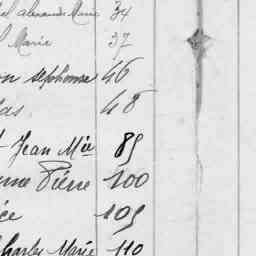 Alexandre Marie 34
Marie 37
46
las 48
Jean Mie 89
Pierre 100
109
Charles Marie 110